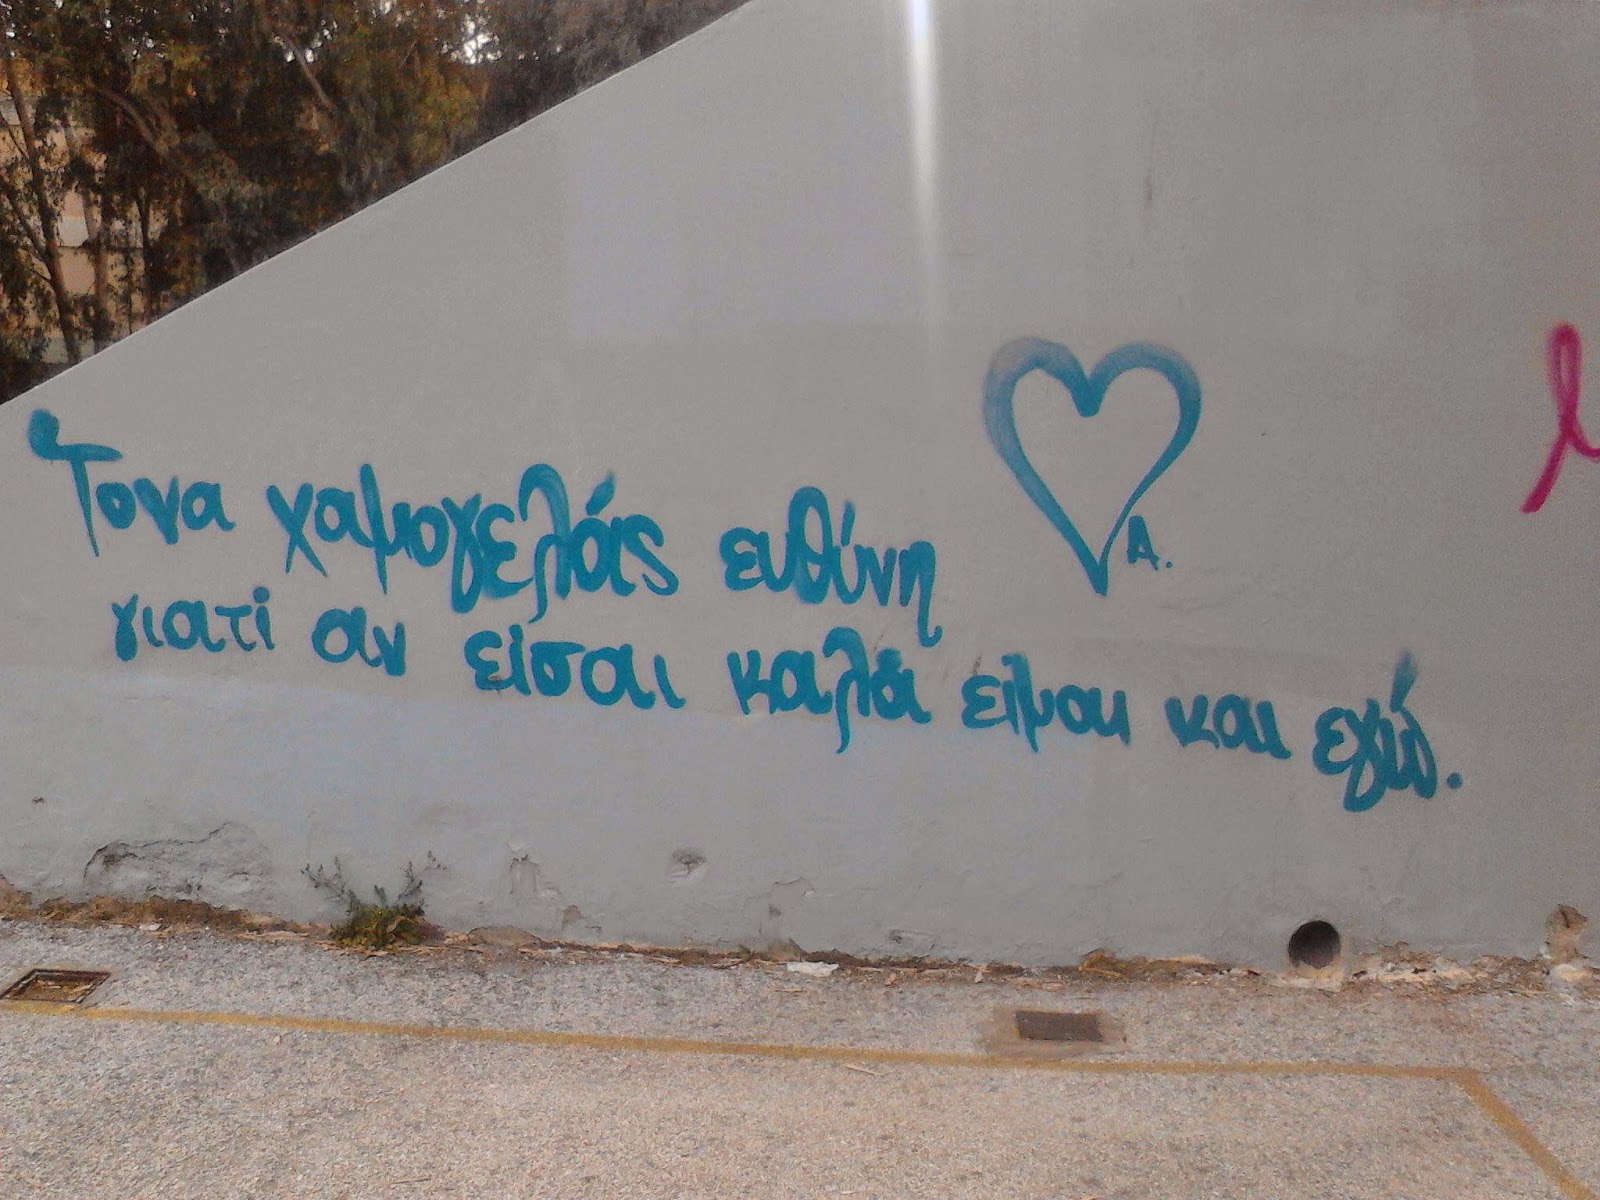 Το να χαμογελάς ευθύνη
γιατί αν είσαι καλά είμαι και εγώ.
Α.